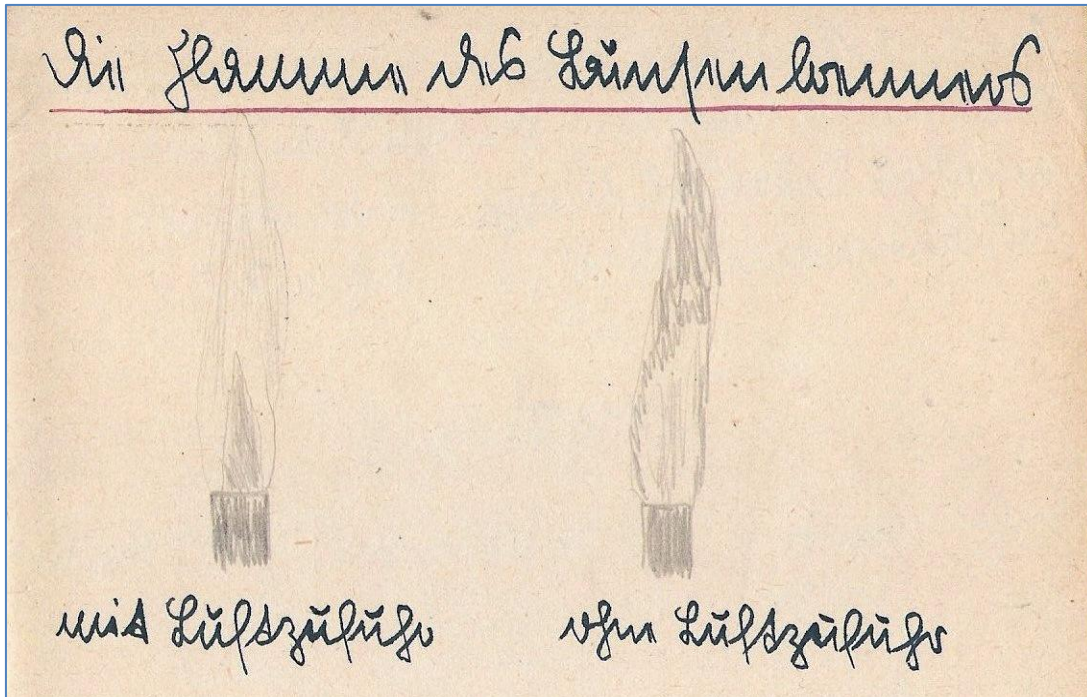 Die Flamme des Bunsenbrenners
mit Luftzufuhr
ohne Luftzufuhr